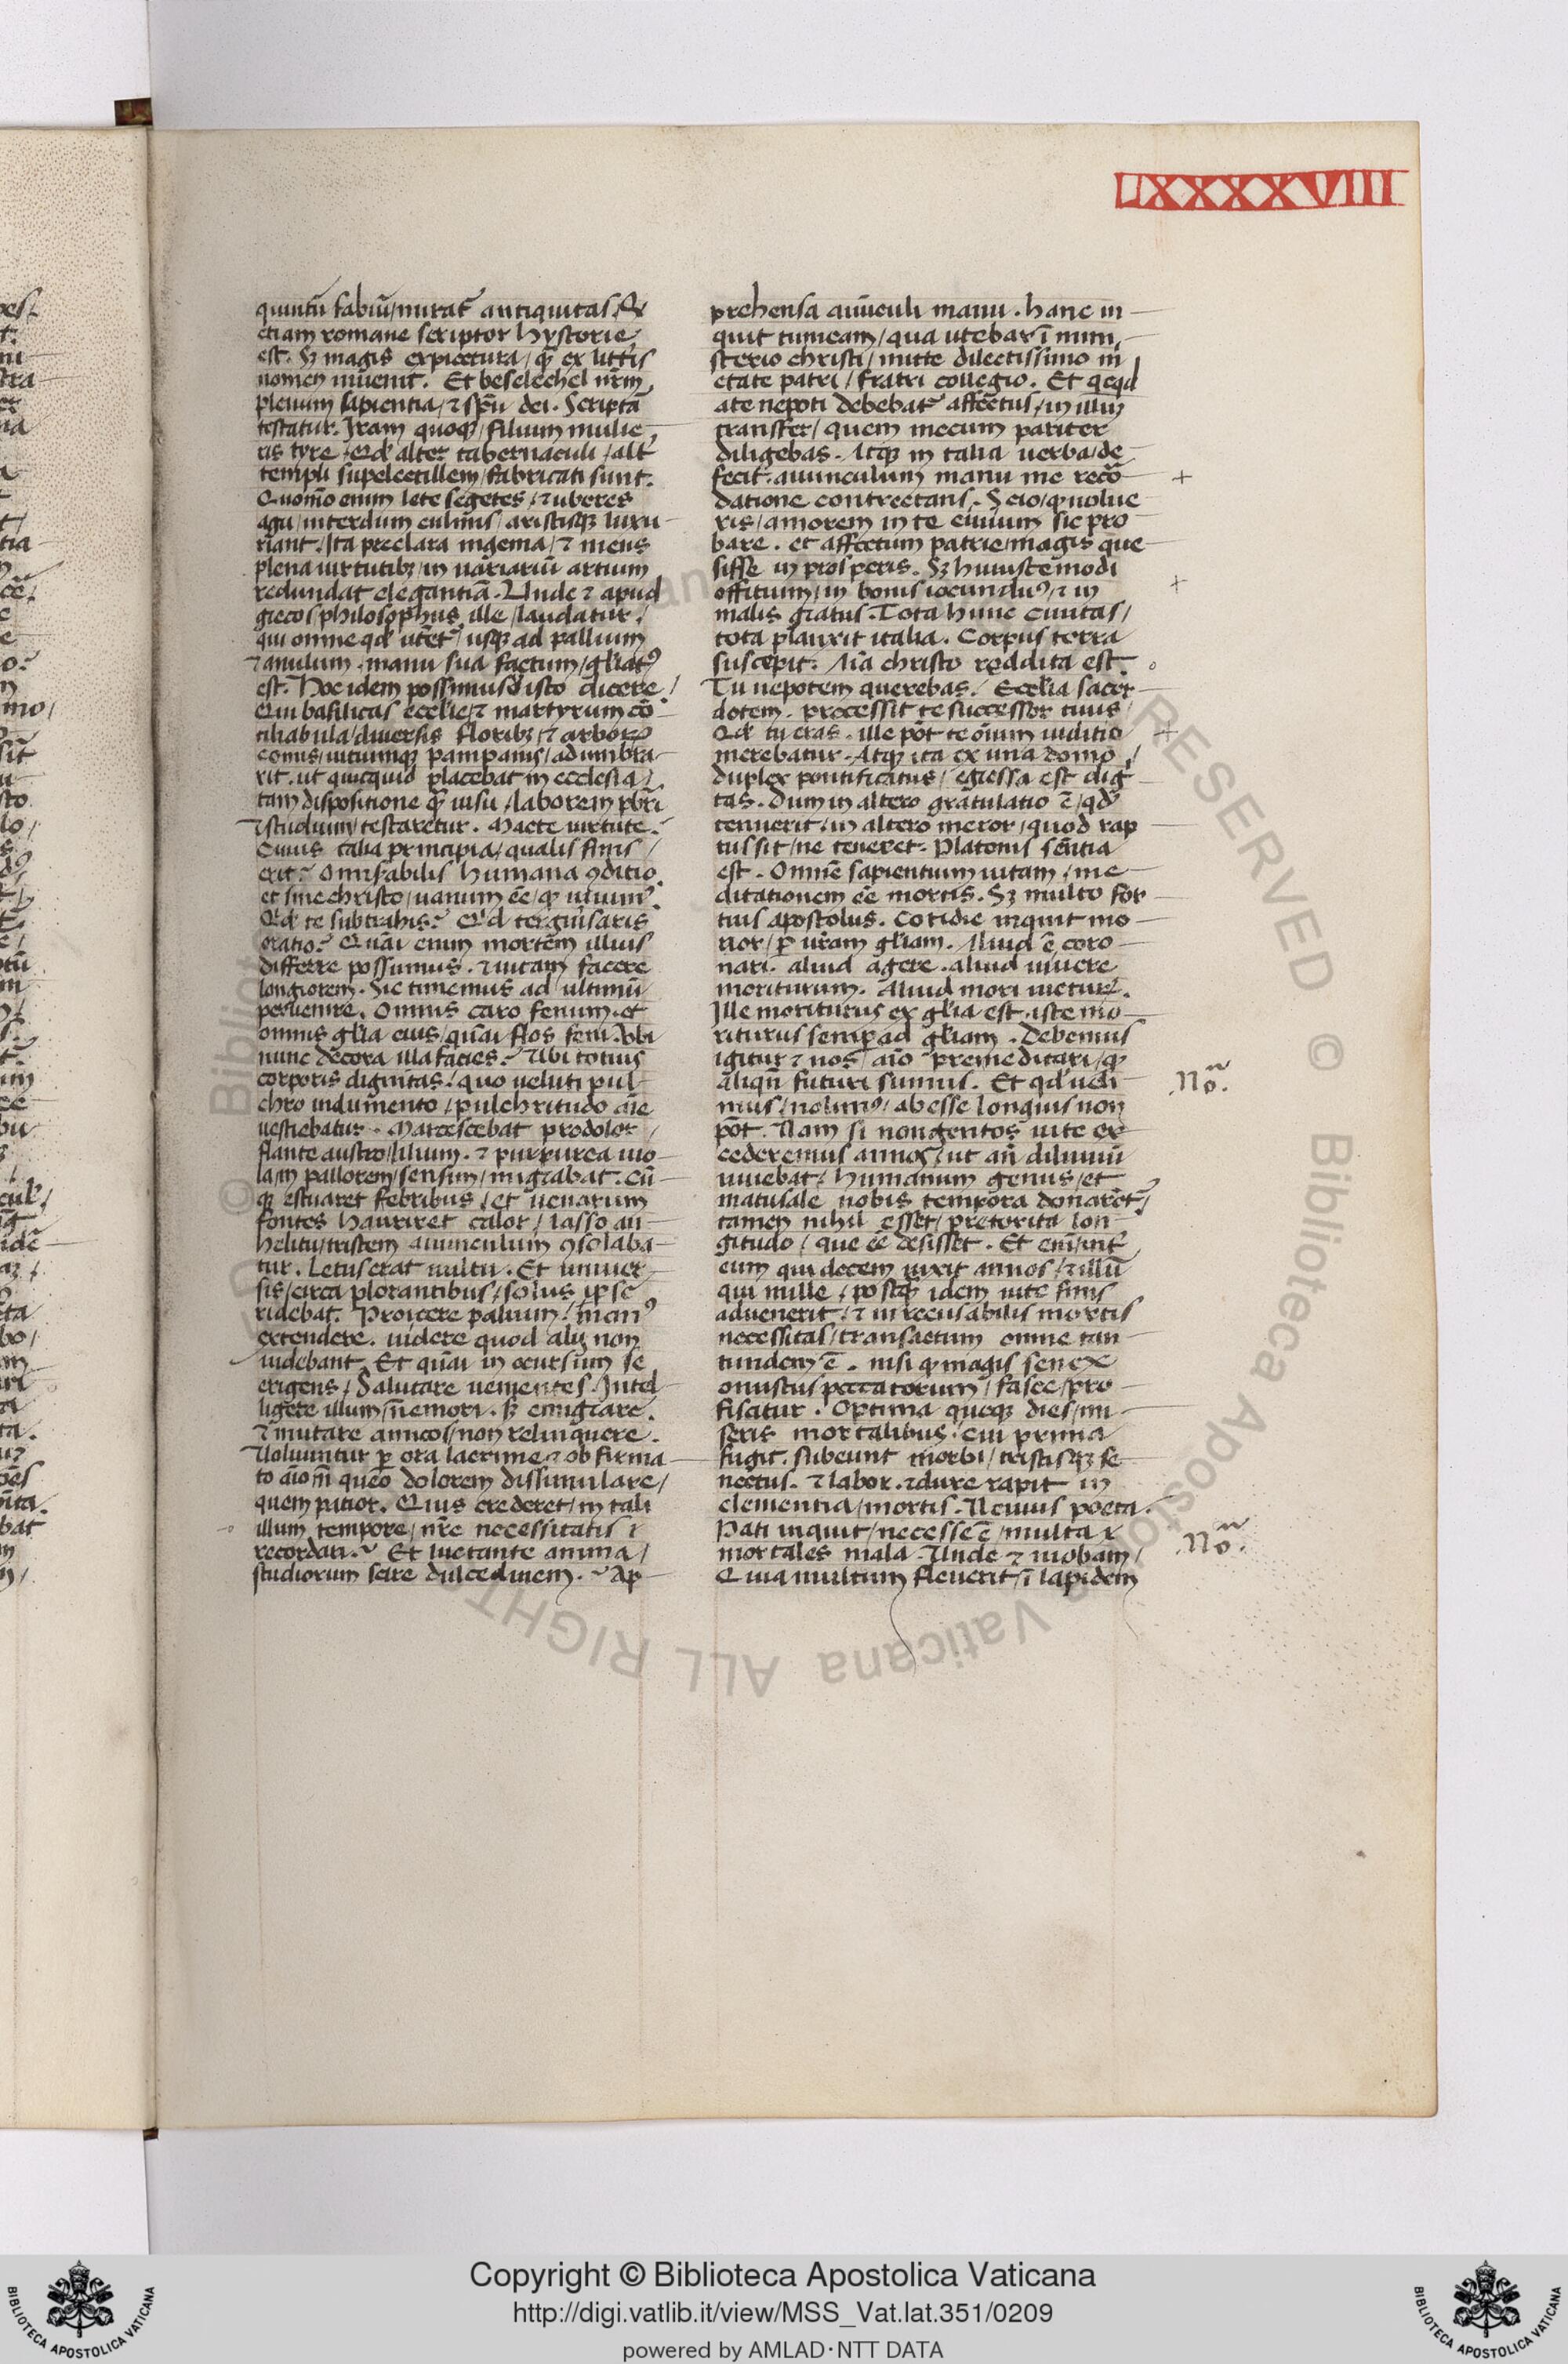 LXXXXVIII
quintū fabiū / mirat᷑ antiquitas. Q̇
etiam romane scriptor hystorie
est. Sꝫ magis ex pictura / qͣ̄ ex litt̄is
nomen inuenit. Et beselechel nr̄m
plenum sapientia / ⁊ sp̄u dei. Scriptā
testatur. Iram quoqꝫ / filium mulie
ris tyre. Qd̕ alter tabernaculi / alt̕
templi supelectillem / fabricati sunt.
Quomō enim lete segetes / ⁊ uberes
agri / interdum culmis / aristisqꝫ luxu
riant. Ita preclara ingenia / ⁊ mens
plena uirtutibꝫ / in uariariū artium
redundat elegantiā. Unde ⁊ apud
grecos philosophus ille / laudatur /
qui omne qd̕ utet᷑ / usqꝫ ad pallium
⁊ anulum manu sua factum / gl̄iatꝰ
est. Hoc idem possimus d̕ isto dicere /
Qui basilicas ecclīe / ⁊ martyrum cō
ciliabula / diuersis floribꝫ / ⁊ arboꝝ
comis / uitiumqꝫ pampanis / adumbra
rit. ut quicquid placebat in ecclesia /
tam dispositione qͣ̄ uisu / laborem pb̄ri
⁊ studium / testaretur. Macte uirtute.
Cuius talia principia / qualis finis /
erit? O mis̄abilis humana ꝯditio
et sine christo / uanum ēē / qꝫ uiuim̄ꝰ.
Qd̕ te subtrahis? Qd̕ terguisaris
oratio? Quāi enim mortem illius
differre possumus. ⁊ uitam facere
longiorem. Sic timemus ad ultimū
peruenire. Omnis caro fenum. et
omnis gl̄ia eius / quāi flos feni. Vbi
nunc decora illa facies? Ubi totius
corporis dignitas / quo ueluti pul
chro indumento / pulchritudo aīe
uestiebatur. Marcescebat prodolor /
flante austro / lilium. ⁊ purpurea uio
la / in pallorem / sensim / migrabat. Cū
qꝫ estuaret febribus / et uenarum
fontes hauriret calor / lasso an
helitu / tristem auunculum ꝯsolaba
tur. Letus erat uultu. Et uniuer
sis / circa plorantibus / solus ip̄se
ridebat. Proicere palium / manꝰ
extendere. uidere quod alij non
uidebant. Et quāi in ocursum se
erigens / Salutare uenientes. Intel
ligere illum / n̄ emori. sꝫ emigrare.
⁊ mutare amicos / non relinquere.
Uoluuntur ꝑ ora lacrime ⁊ obfirma
to aīo n̄ queo dolorem dissimulare /
quem patior. Quis crederet / in tali
illum tempore / nr̄e necessitatis
recordati. Et luctante anima /
studiorum scire dulcedinem. Ap
prehensa auūculi manu. hanc in
quit tunicam / qua utebar ī mini
sterio christi / mitte dilectissimo m̄
etate patri / fratri collegio. Et qͥcqͥd
a te nepoti debebat᷑ affectus / in illū
transfer / quem mecum pariter
diligebas. Atqꝫ in talia uerba / de
fecit. auunculum manu me recō
datione contrectans. Scio / qꝫ nolue
ris / amorem in te ciuium sic pro
bare. et affectum patrie / magis que
sisse in prosperis. Sꝫ huiuscemodi
offitium / in bonis iocundūꝰ / ⁊ in
malis gratus. Tota hunc ciuitas /
tota planxit italia. Corpus terra
suscepit. Aīa christo reddita est.
Tu nepotem querebas. Ecclīa sacer
dotem. processit te successor tuus
Qd̕ tu eras. ille pōt te oīum iuditio
merebatur. Atqꝫ ita ex una domo /
duplex pontificatus / egressa est dig
tas. Dum in altero gratulatio ē / qd̕
tenuerit. in altero meror / quod rap
tus sit / ne teneret. Platonis sentīa
est. Omnē sapientium uitam / me
ditationem ēē mortis. Sꝫ multo for
tius apostolus. Cotidie inquit mo
rior / ꝑ ur̄am gl̄iam. Aliud ē coro
nari. aliud agere. aliud uiuere
moriturum. Aliud mori uictur̄.
Ille moriturus ex gl̄ia est. iste mo
riturus semp̄ ad gl̄iam. Debemus
igitur ⁊ nos / aīo premeditari / qꝫ
aliqn̄ futuri sumus. Et qd̕ ueli
mus / nolimꝰ / abesse longius non
pōt. Nam si nongentos uite ex
cederemus annos / ut an̄ diluuiū
uiuebat / humanum genus / et
matusale nobis tempora donaret᷑ /
tamen nihil esset / preterita lon
gitudo / que ēē desisset. Et enī / int̕
eum qui decem uixit annos / ⁊ illū
qui mille / postqͣ̄ idem uite finis
aduenerit / ⁊ inrecusabilis mortis
necessitas / transactum omne tan
tundem ē. nisi qꝫ magis senex
onustus peccatorum / fasce / pro
fisatur. Optima queqꝫ dies / mi
seris mortalibus / cui prima
fugit. subeunt morbi / tristisqꝫ se
nectus. ⁊ labor. ⁊ dure rapit in
clementia / mortis. Neuius poeta.
Pati inquit / necesse ē / multa
mortales mala. Unde ⁊ niobam /
Quia multum fleuerit / ī lapidem
No.
No.
Copyright © Biblioteca Apostolica Vaticana
http://digi.vatlib.it/view/MSS_Vat.lat.351/0209
powered by AMLAD·NTT DATA
BIBLIOTECA APOSTOLICA VATICANA
BIBLIOTECA APOSTOLICA VATICANA